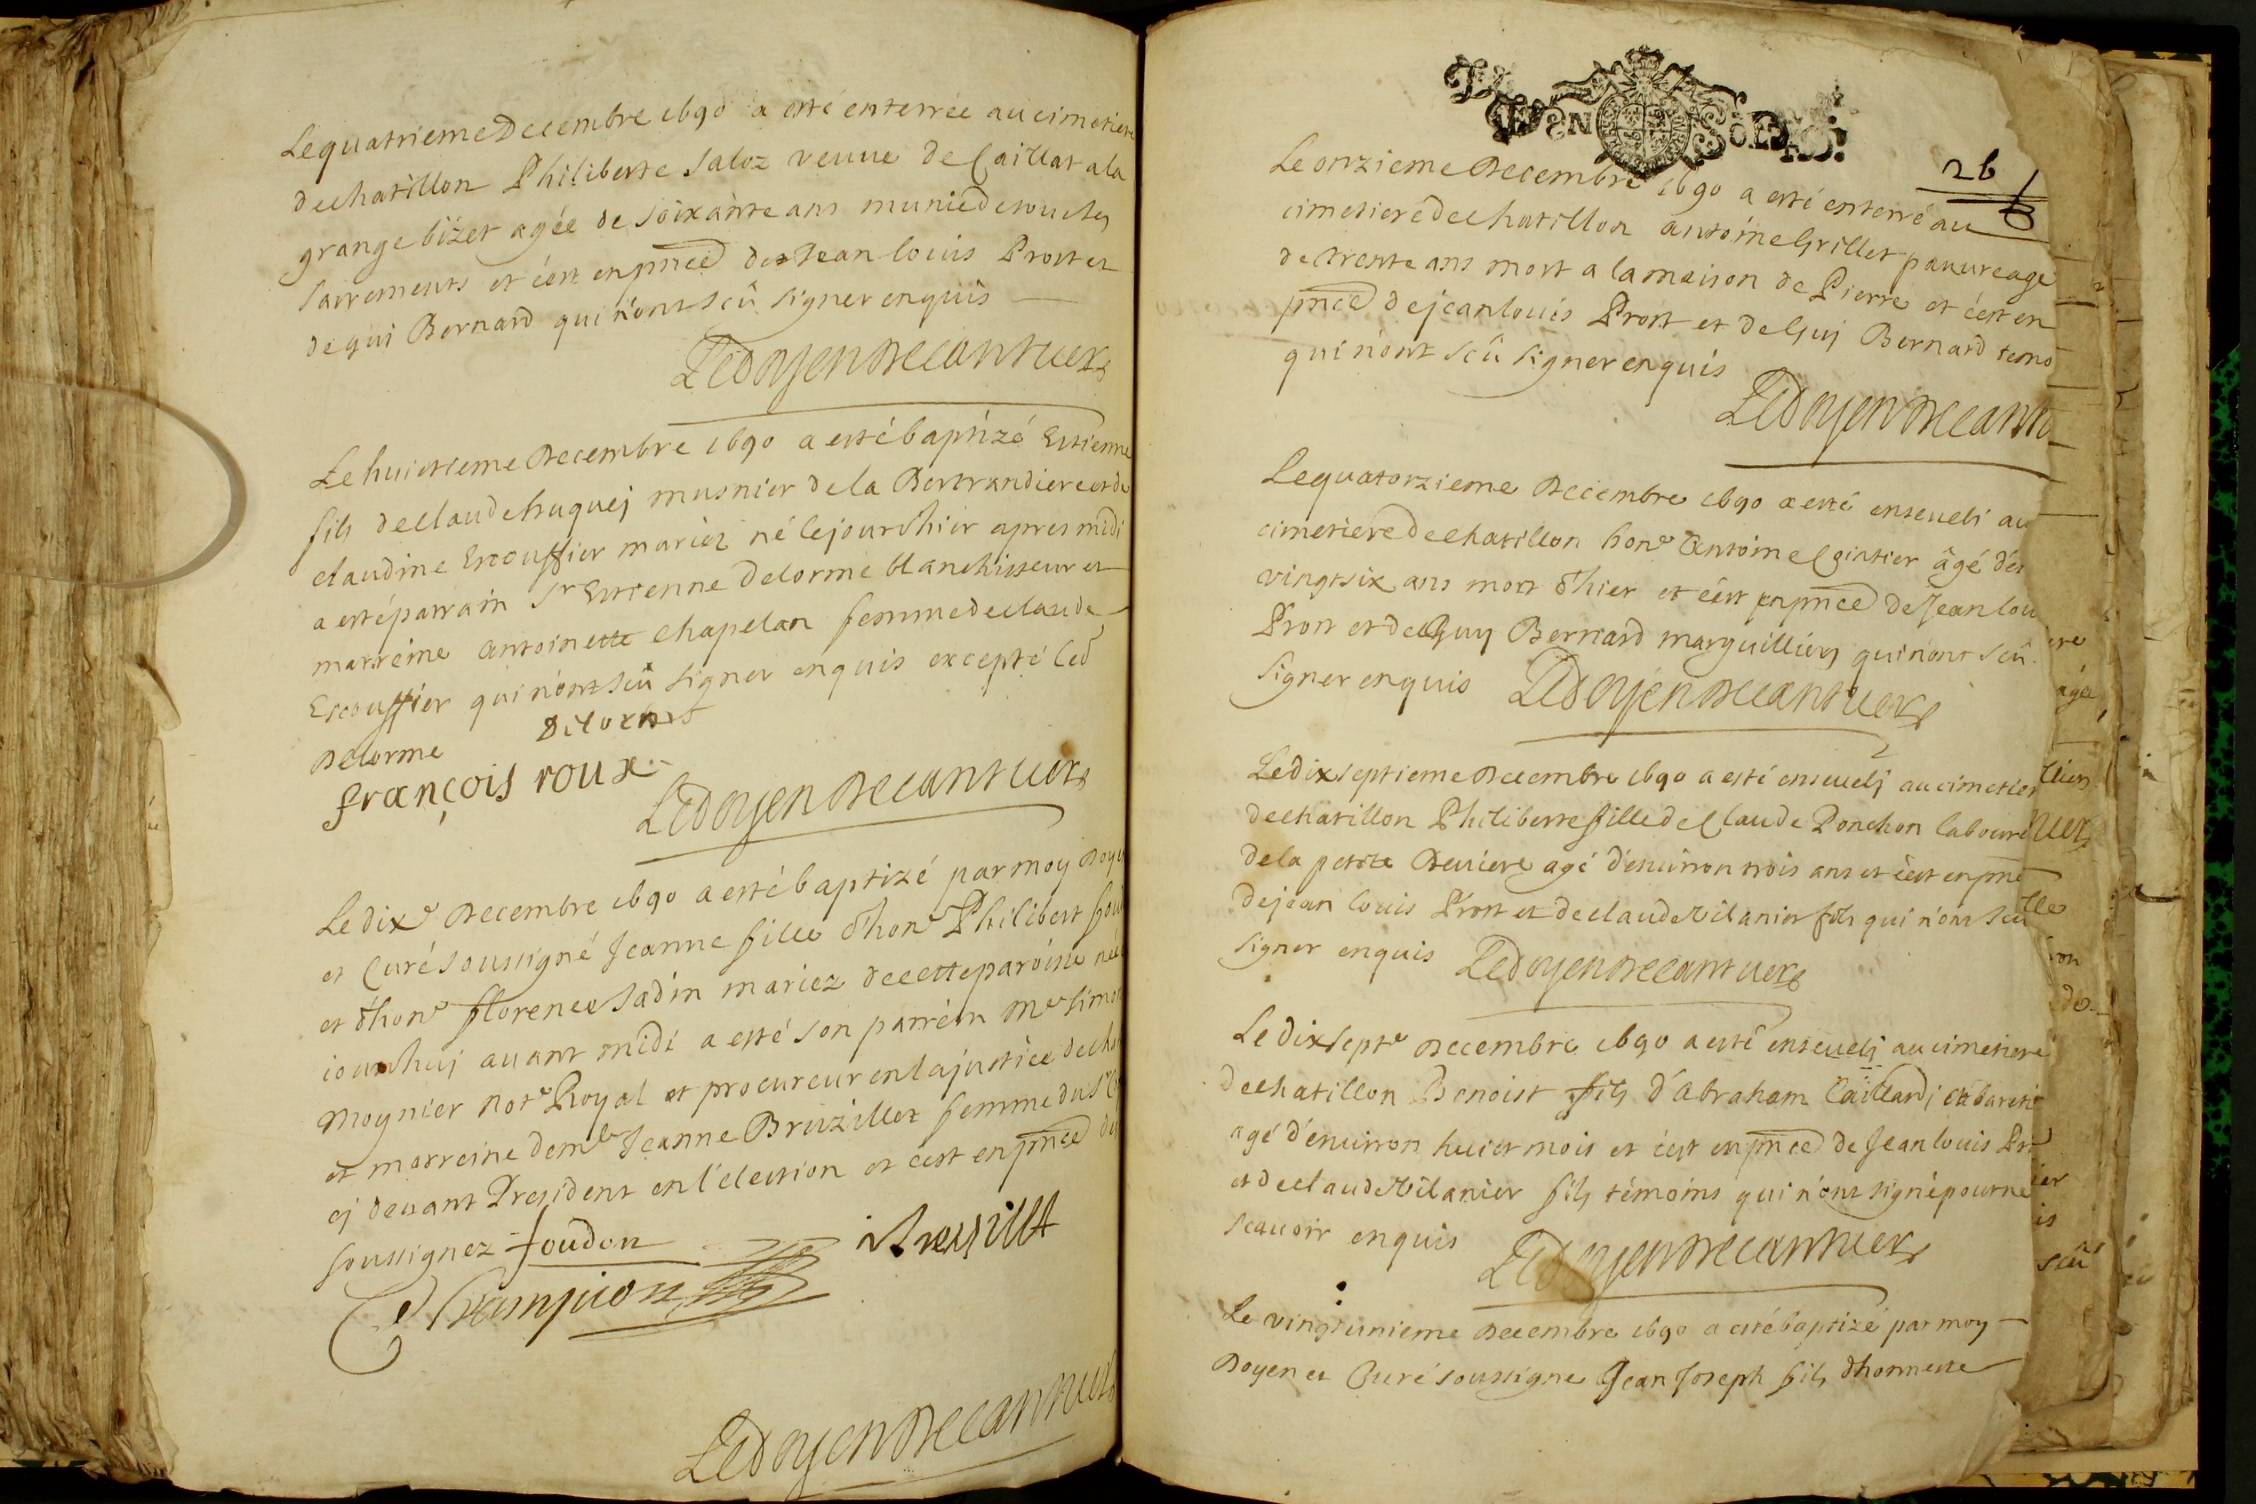 Le quatrieme Decembre 1690 a esté enterrée au cimetiere
de chatillon Philiberte Saloz veuve de Caillat a la
grange bizet agée de soixante ans munie de tous les
sacrements et c'est en pnce de Jean louis Prost et
de gui Bernard qui n'ont sçû signer enquis
Ledoyen Decantuera
Le huictieme Decembre 1690 a esté baptizé Estienne
fils de claude huguej musnier de la Bertrandiere et de
claudine Escouffier mariez né le jour d'hier apres midi
a esté parrain Sr Estienne Delorme blanchisseur et
marreine antoinette chapelan femme de claude
Escouffier qui n'ont sçû signer enquis excepté led
Delorme
françois roux
Ledoyen Decantuera
Le dixe Decembre 1690 a esté baptizé par moy Doye
et Curé soussigné Jeanne fille d'hone Philibert
et d'hone florence Jadin mariez de cette paroisse née
iourdhuj avant midi a esté son parrein Me simon
Moynier note Royal et procureur en la justice de cha
et marreine demlle Jeanne Bruzillet femme du Sr
cj devant President en l'election et c'est en pnce de
soussignez foudon
Champion
Ledoyen Decantuera
26
Le onzieme Decembre 1690 a esté enterré au
cimetiere de chatillon antoine Grillet pauvre age
de trente ans mort a la maison de Pierre et c'est en
pnce de jean louis Prost et de Guij Bernard temo
qui n'ont sçû signer enquis
Ledoyen Decantu
Le quatorzieme Decembre 1690 a esté enseveli au
cimetiere de chatillon hone Antoine Cointier âgé de
vingt six ans mort d'hier et c'est en pnce de Jean lou
Prost et de Guy Bernard marguilliers qui n'ont sçû
signer enquis Ledoyen Decantuera
Le dix septieme Decembre 1690 a esté ensevelj au cimetier
de chatillon Philiberte fille de Claude Ponchon laboure
de la petite Reviere agé d'environ trois ans et c'est en pnce
de jean louis Prost et de claude Vilanier fils qui n'ont sçû
signer enquis Ledoyen Decantuera
Le dix septe Decembre 1690 a esté ensevelj au cimetiere
de chatillon Benoist fils d'Abraham Caillard cabareti
agé d'environ huict mois et c'est en pnce de Jean louis Pr
et de claude Vilanier fils témoins qui n'ont signé pour ne
scavoir enquis Ledoyen Decantuera
Le vingt unieme Decembre 1690 a esté baptizé par moy
Doyen et Curé soussigne Jean Joseph fils d'honneste